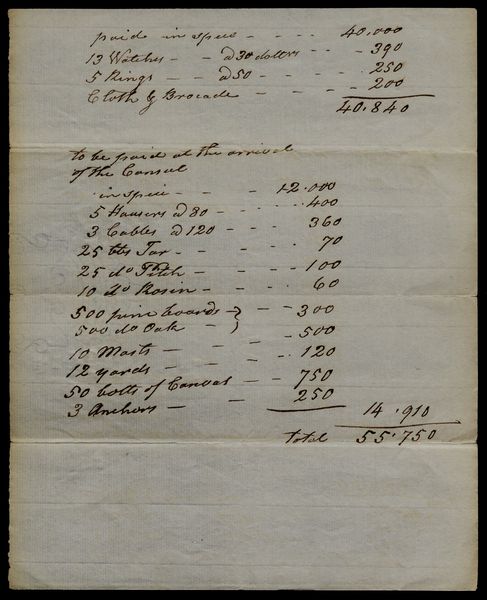 paid in specie - - - 40.000
13 Watches - - a 30 dollars - - 390
5 Rings - - a 50 - - - 250
Cloth & Brocade - - - - 200
40.840
to be paid at the arrival
of the Consul
in specie - - - 12.000
5 Hausers a 80 - - - 400
3 Cables a 120 - - - 360
25 bbs Tar - - - 70
25 do Pitch - - - 100
10 do Rosin - - - 60
500 pine boards - } - - 300
500 do Oak - }
10 Masts - - - 500
12 yards - - - 120
50 bolts of Canvas - - 750
3 Anchors - - 250
14.910
total 55.750